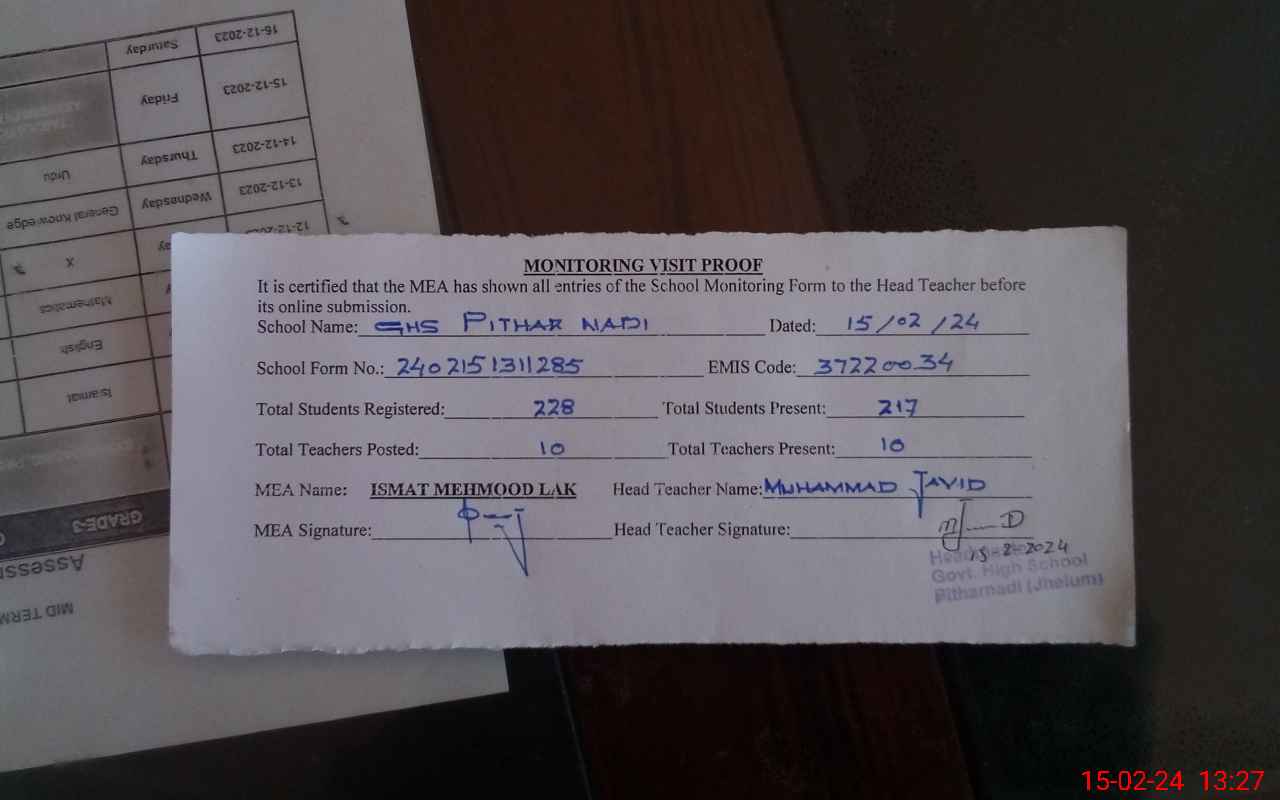 MONITORING VISIT PROOF
It is certified that the MEA has shown all entries of the School Monitoring Form to the Head Teacher before
its online submission.
School Name: GHS PITHAR NADI Dated: 15/02/24
School Form No.: 240215131285 EMIS Code: 37220034
Total Students Registered: 228 Total Students Present: 217
Total Teachers Posted: 10 Total Teachers Present: 10
MEA Name: ISMAT MEHMOOD LAK Head Teacher Name: MUHAMMAD JAVID
MEA Signature: Head Teacher Signature:
15-2-2024
Govt. High School
Pitharnadi (Jhelum)
MID TERM
GRADE-3
Islamiat
English
Mathematics
X
12-12-2023
General Knowledge Wednesday 13-12-2023
Urdu Thursday 14-12-2023
Friday 15-12-2023
Saturday 16-12-2023
15-02-24 13:27